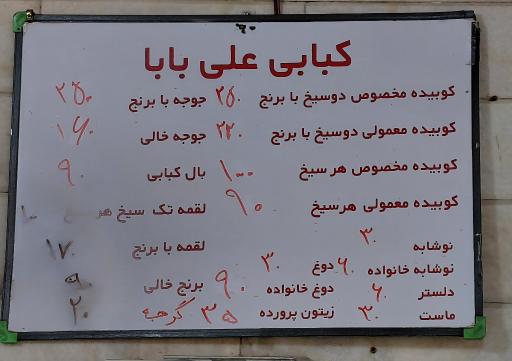 کبابی علی بابا
کوبیده مخصوص دوسیخ با برنج ۲۵۰ جوجه با برنج ۲۵۰
کوبیده معمولی دوسیخ با برنج ۲۲۰ جوجه خالی ۱۶۰
کوبیده مخصوص هر سیخ ۱۰۰ بال کبابی ۹۰
کوبیده معمولی هرسیخ ۹۰ لقمه تک سیخ هر
نوشابه ۳۰ لقمه با برنج ۱۷۰
نوشابه خانواده ۶۰ دوغ ۳۰ برنج خالی ۹۰
دلستر ۶۰ دوغ خانواده ۹۰
ماست ۳۰ زیتون پرورده ۳۵ گوجه ۲۰